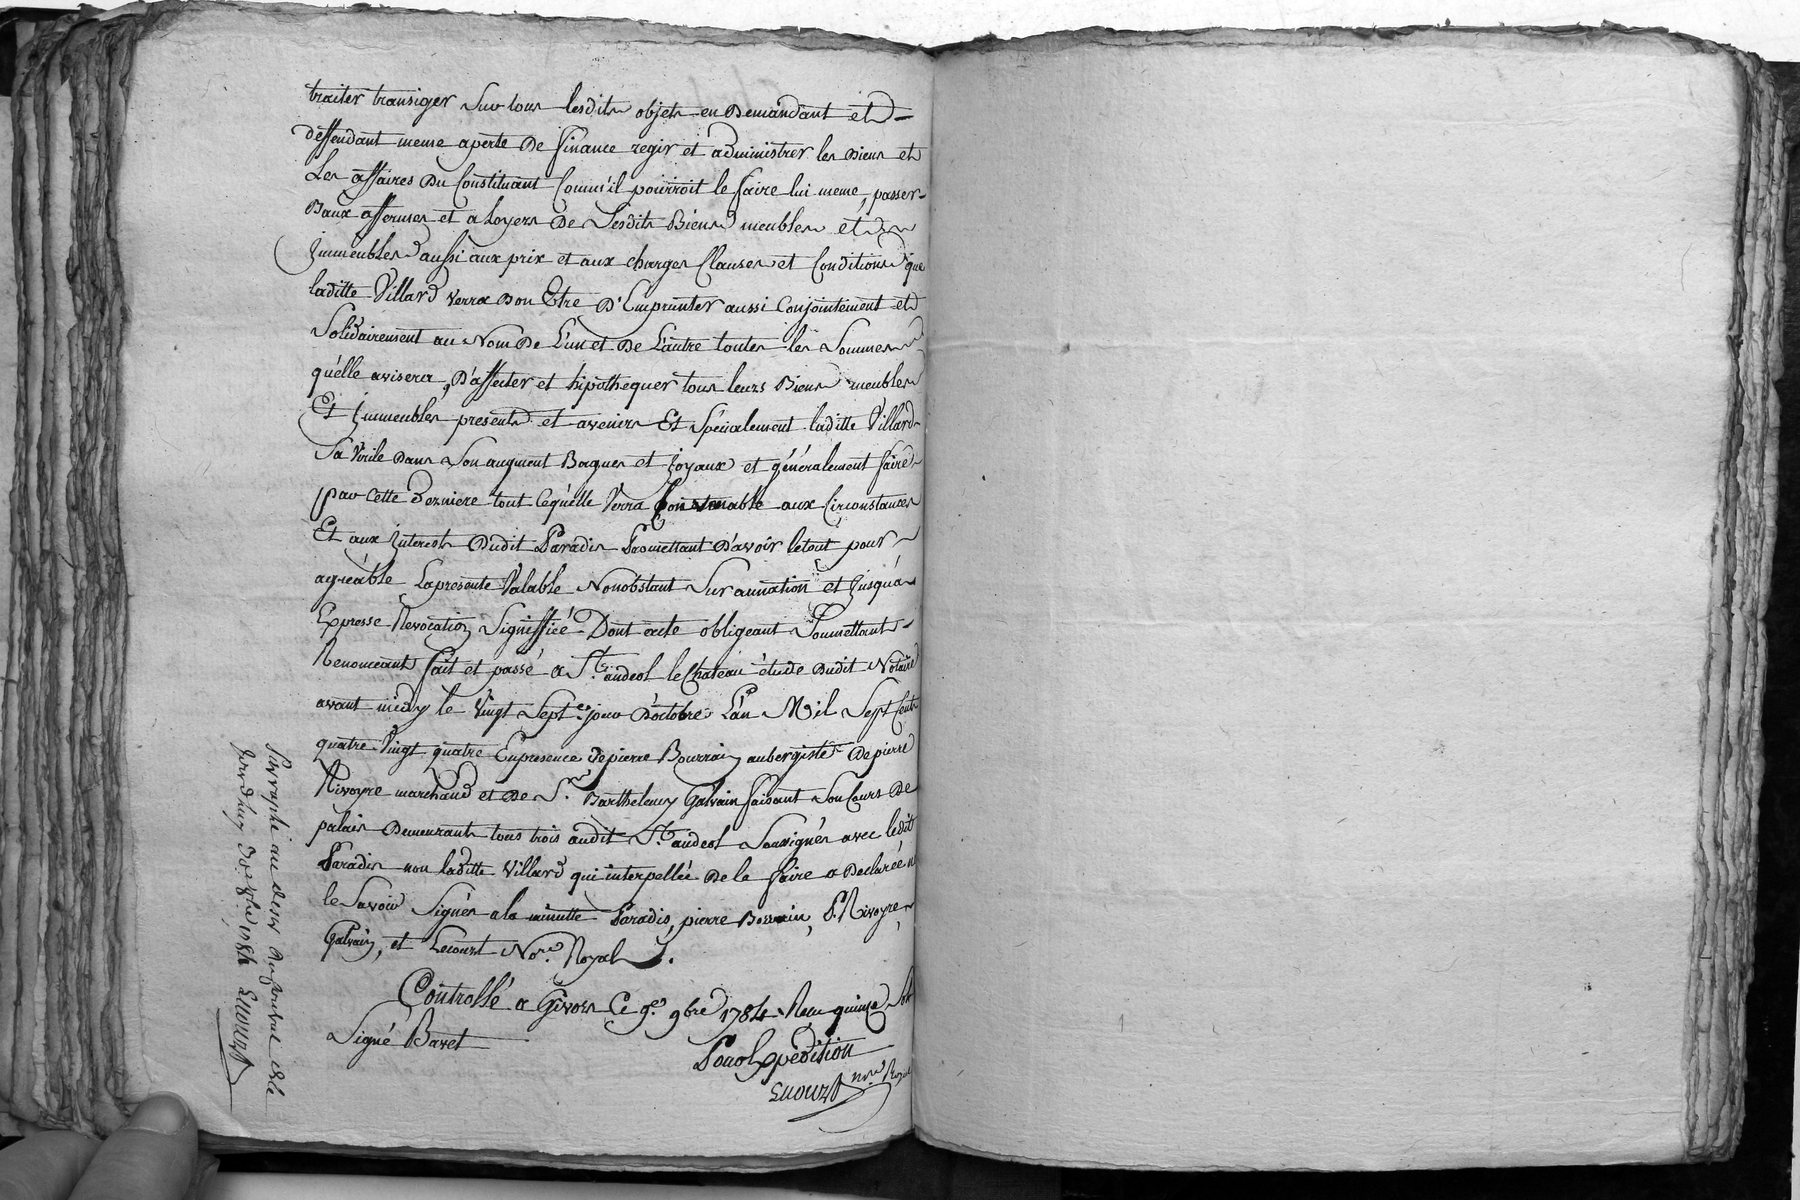 traiter transiger Sur tous lesdits objets en Demandant et
deffendant meme aperte De finance regir et administrer les Biens et
Les affaires Du Constituant Comm'il pourroit le faire lui meme, passer
Baux affermes et a Loyers De Sesdits Biens meubles et
Immeubles aussi aux prix et aux charges Clauses et Conditions que
laditte Villard verra Bon Etre D'Emprunter aussi Conjointement et
Solidairement au Nom De L'un et De L'autre toutes les Sommes
qu'elle avisera, D'affecter et hipothequer tous leurs Biens meubles
Et Immeubles presents et avenirs Et Spécialement laditte Villard
Sa Virile Dans Son augment Bagues et Joyaux et généralement faire
par Cette Derniere tout Cequ'elle Verra Convenable aux Circonstances
Et aux Interests Dudit Paradis Promettant D'avoir letout pour
agréable Lapresente Valable Nonobstant Surannation et Jusqu'a
Expresse Revocation Signiffiée Dont acte obligeant Soumettant
Renonceant fait et passé a St. andeol le Chateau étude Dudit Notaire
avant midy le Vingt Sept.e jour D'octobre L'an Mil Sept Cent
quatre Vingt quatre Enpresence de pierre Bourrin aubergiste De pierre
Rivoyre marchand et De Sr. Barthelemy Galvain faisant Son Cours De
palais Demeurants tous trois audit St. andeol Soussignés avec ledit
Paradis non laditte Villard qui interpellée De le faire a Declarée n
le Savoir Signés ala minutte Paradis, pierre Bourrin, P. Rivoyre
Galvain, et Lecourt No.re Royal.
Controllé a Givors Ce 9.e 9bre 1784 Recu quinze Sols
Signé Bavet
Pour Expédition
Lecourt nre. Royal